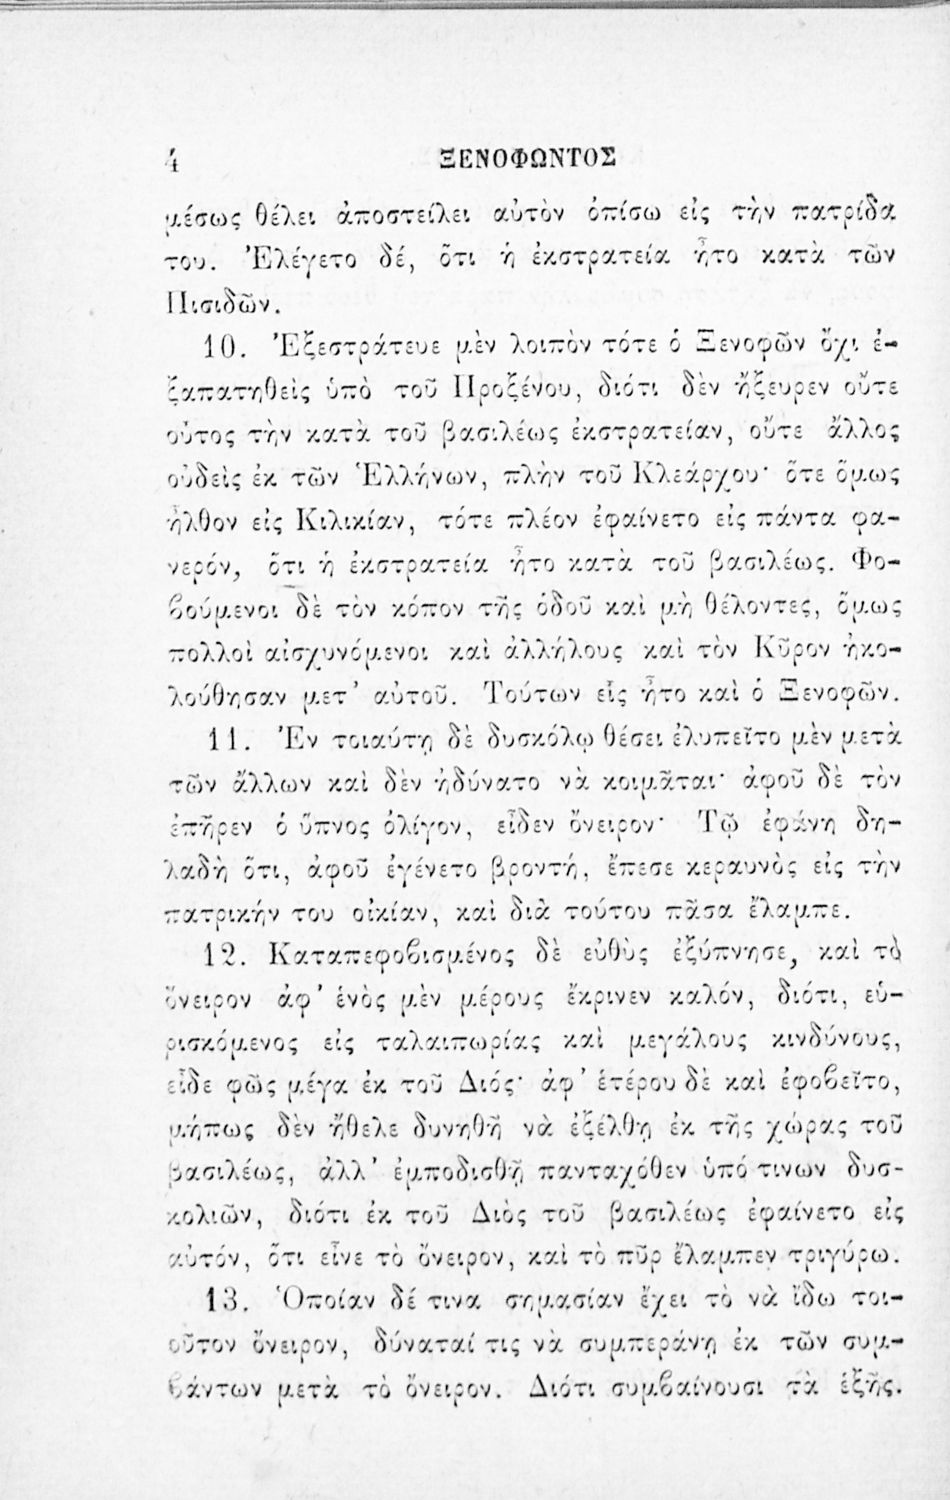 4 ΞΕΝΟΦΩΝΤΟΣ
μέσως θέλει ἀποστείλει αὐτὸν ὀπίσω εἰς τὴν πατρίδα
του. Ἐλέγετο δέ, ὅτι ἡ ἐκστρατεία ἦτο κατὰ τῶν
Πισιδῶν.
10. Ἐξεστράτευε μὲν λοιπὸν τότε ὁ Ξενοφῶν ὄχι ἐ-
ξαπατηθεὶς ὑπὸ τοῦ Προξένου, διότι δὲν ἤξευρεν οὔτε
οὗτος τὴν κατὰ τοῦ βασιλέως ἐκστρατείαν, οὔτε ἄλλος
οὐδεὶς ἐκ τῶν Ἑλλήνων, πλὴν τοῦ Κλεάρχου· ὅτε ὅμως
ἦλθον εἰς Κιλικίαν, τότε πλέον ἐφαίνετο εἰς πάντα φα-
νερόν, ὅτι ἡ ἐκστρατεία ἦτο κατὰ τοῦ βασιλέως. Φο-
ϐούμενοι δὲ τὸν κόπον τῆς ὁδοῦ καὶ μὴ θέλοντες, ὅμως
πολλοὶ αἰσχυνόμενοι καὶ ἀλλήλους καὶ τὸν Κῦρον ἠκο-
λούθησαν μετ’ αὐτοῦ. Τούτων εἷς ἦτο καὶ ὁ Ξενοφῶν.
11. Ἐν τοιαύτῃ δὲ δυσκόλῳ θέσει ἐλυπεῖτο μὲν μετὰ
τῶν ἄλλων καὶ δὲν ἠδύνατο νὰ κοιμᾶται· ἀφοῦ δὲ τὸν
ἐπῆρεν ὁ ὕπνος ὀλίγον, εἶδεν ὄνειρον· Τῷ ἐφάνη δη-
λαδὴ ὅτι, ἀφοῦ ἐγένετο βροντή, ἔπεσε κεραυνὸς εἰς τὴν
πατρικήν του οἰκίαν, καὶ διὰ τούτου πᾶσα ἔλαμπε.
12. Καταπεφοϐισμένος δὲ εὐθὺς ἐξύπνησε, καὶ τὸ
ὄνειρον ἀφ’ ἑνὸς μὲν μέρους ἔκρινεν καλόν, διότι, εὑ-
ρισκόμενος εἰς ταλαιπωρίας καὶ μεγάλους κινδύνους,
εἶδε φῶς μέγα ἐκ τοῦ Διός· ἀφ’ ἑτέρου δὲ καὶ ἐφοϐεῖτο,
μήπως δὲν ἤθελε δυνηθῆ νὰ ἐξέλθῃ ἐκ τῆς χώρας τοῦ
βασιλέως, ἀλλ’ ἐμποδισθῇ πανταχόθεν ὑπό τινων δυσ-
κολιῶν, διότι ἐκ τοῦ Διὸς τοῦ βασιλέως ἐφαίνετο εἰς
αὐτόν, ὅτι εἶνε τὸ ὄνειρον, καὶ τὸ πῦρ ἔλαμπεν τριγύρω.
13. Ὁποίαν δέ τινα σημασίαν ἔχει τὸ νὰ ἴδω τοι-
οῦτον ὄνειρον, δύναταί τις νὰ συμπεράνῃ ἐκ τῶν συμ-
ϐάντων μετὰ τὸ ὄνειρον. Διότι συμϐαίνουσι τὰ ἑξῆς.